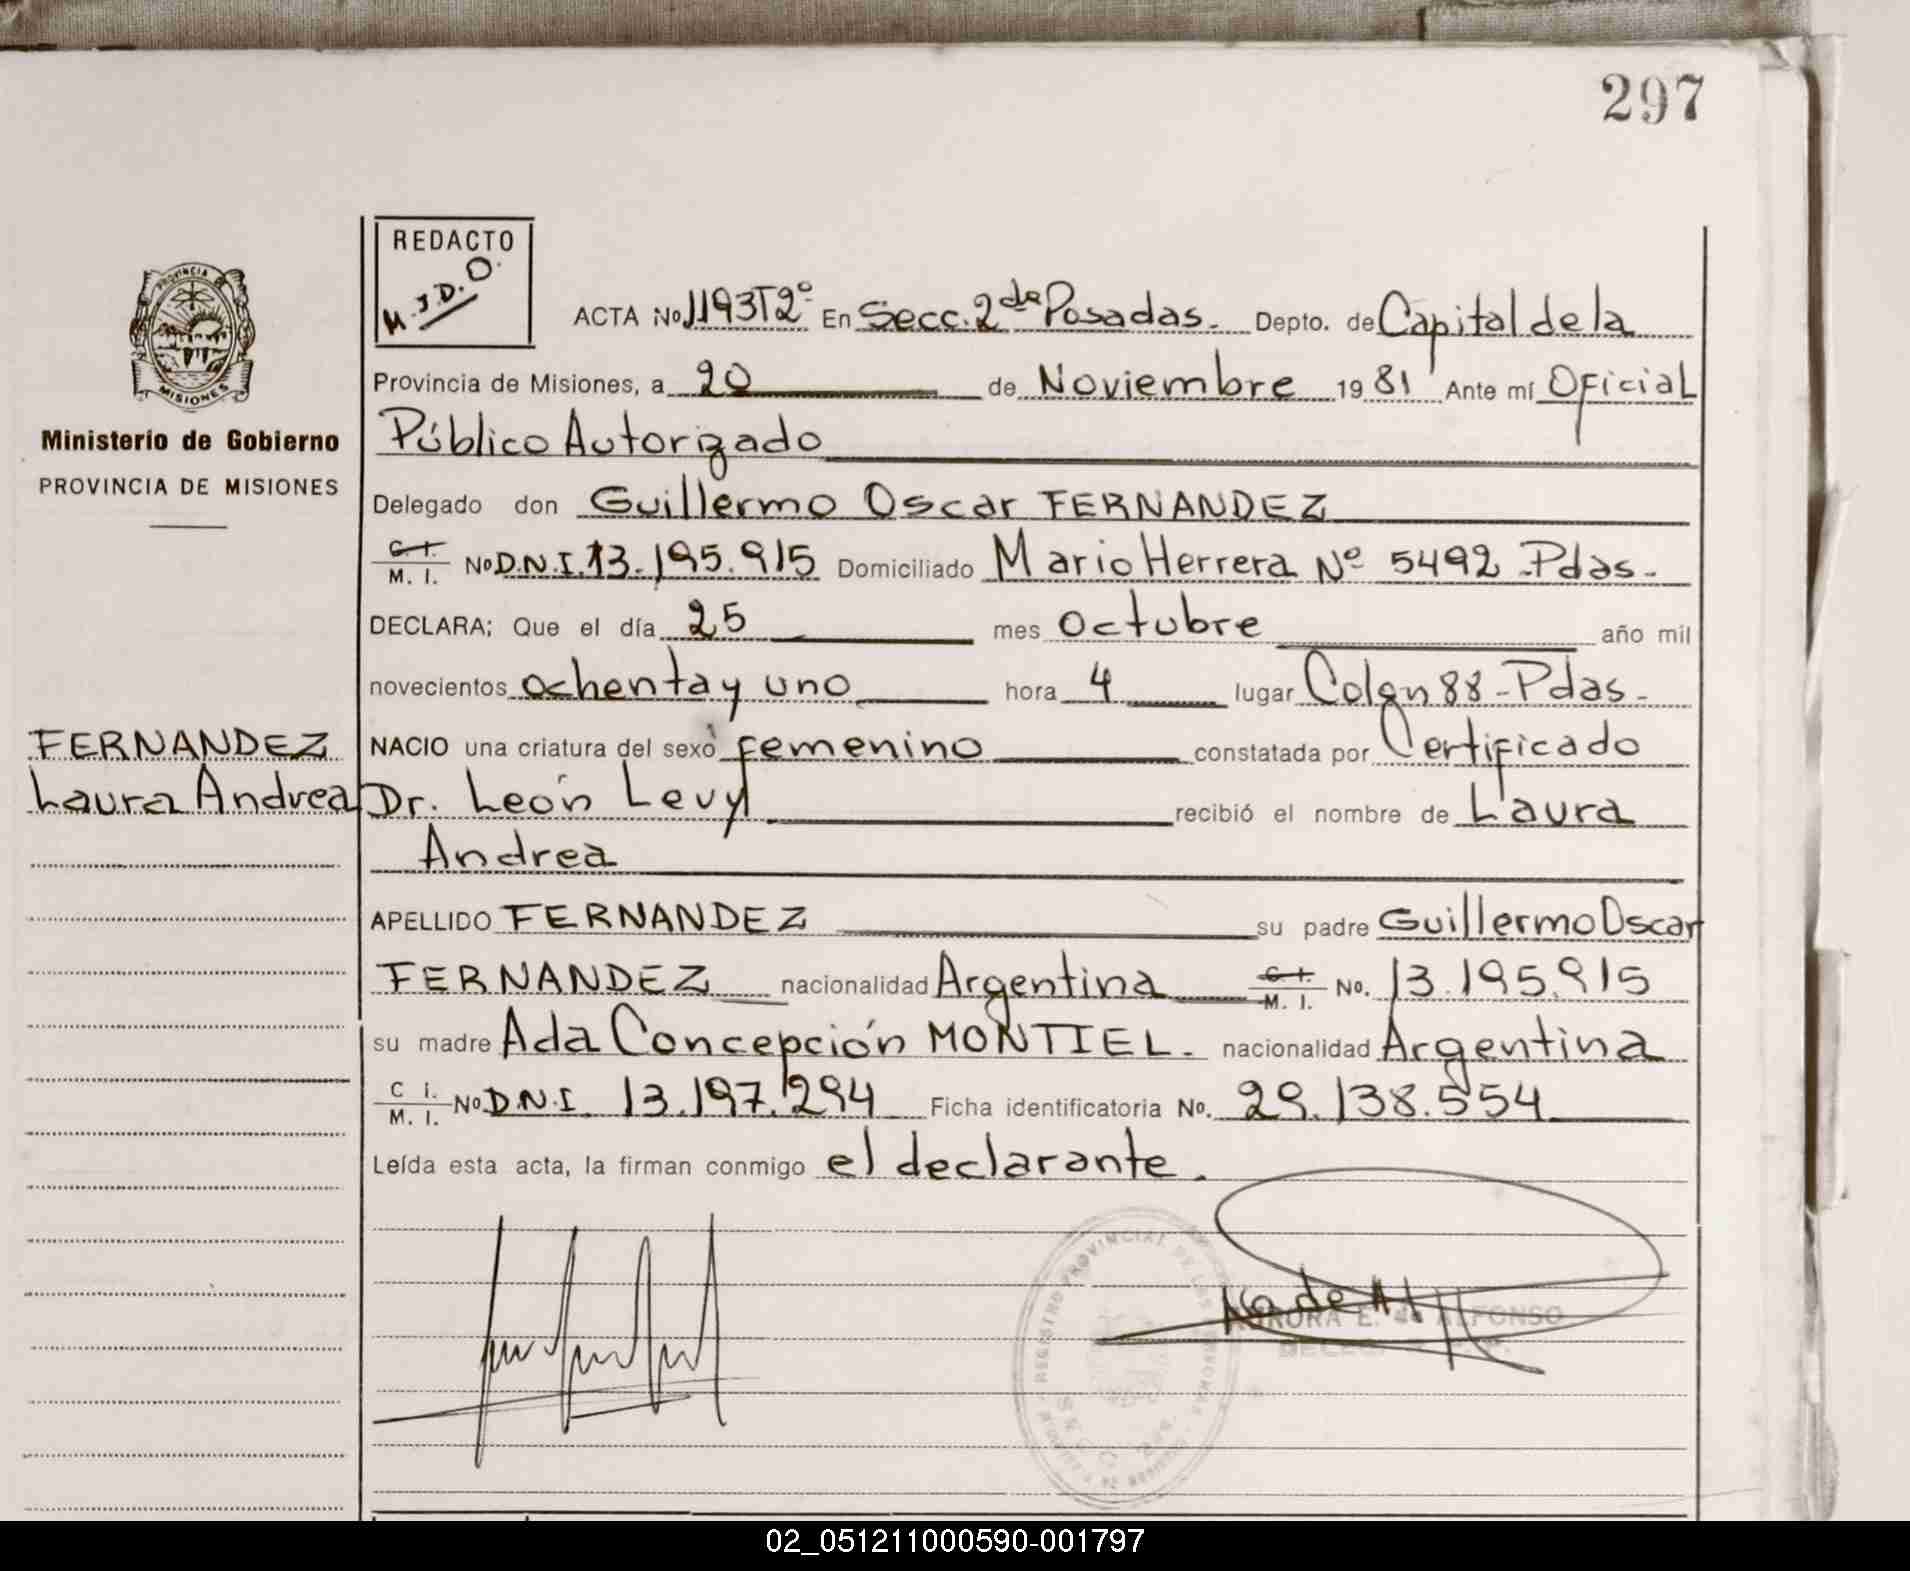 297
REDACTO
M.J.D.O.
PROVINCIA
MISIONES
ACTA No 1193T2º En Secc. 2da Posadas. Depto. de Capital de la
Provincia de Misiones, a 20 de Noviembre 1981 Ante mí Oficial
Ministerio de Gobierno
Público Autorizado
PROVINCIA DE MISIONES
Delegado don Guillermo Oscar FERNANDEZ
C. I. M. I. No D.N.I. 13.195.915 Domiciliado Mario Herrera Nº 5492 - Pdas.
DECLARA; Que el día 25 mes Octubre año mil
novecientos ochenta y uno hora 4 lugar Colon 88 - Pdas.
FERNANDEZ
Laura Andrea
NACIO una criatura del sexo femenino constatada por Certificado
Dr. León Levy recibió el nombre de Laura
Andrea
APELLIDO FERNANDEZ su padre Guillermo Oscar
FERNANDEZ nacionalidad Argentina C. I. M. I. No. 13.195.915
su madre Ada Concepción MONTIEL. nacionalidad Argentina
C I. M. I. No D.N.I. 13.197.294 Ficha identificatoria No. 29.138.554
Leída esta acta, la firman conmigo el declarante.
REGISTRO PROVINCIAL DE LAS PERSONAS
AURORA E. de ALFONSO
02_051211000590-001797